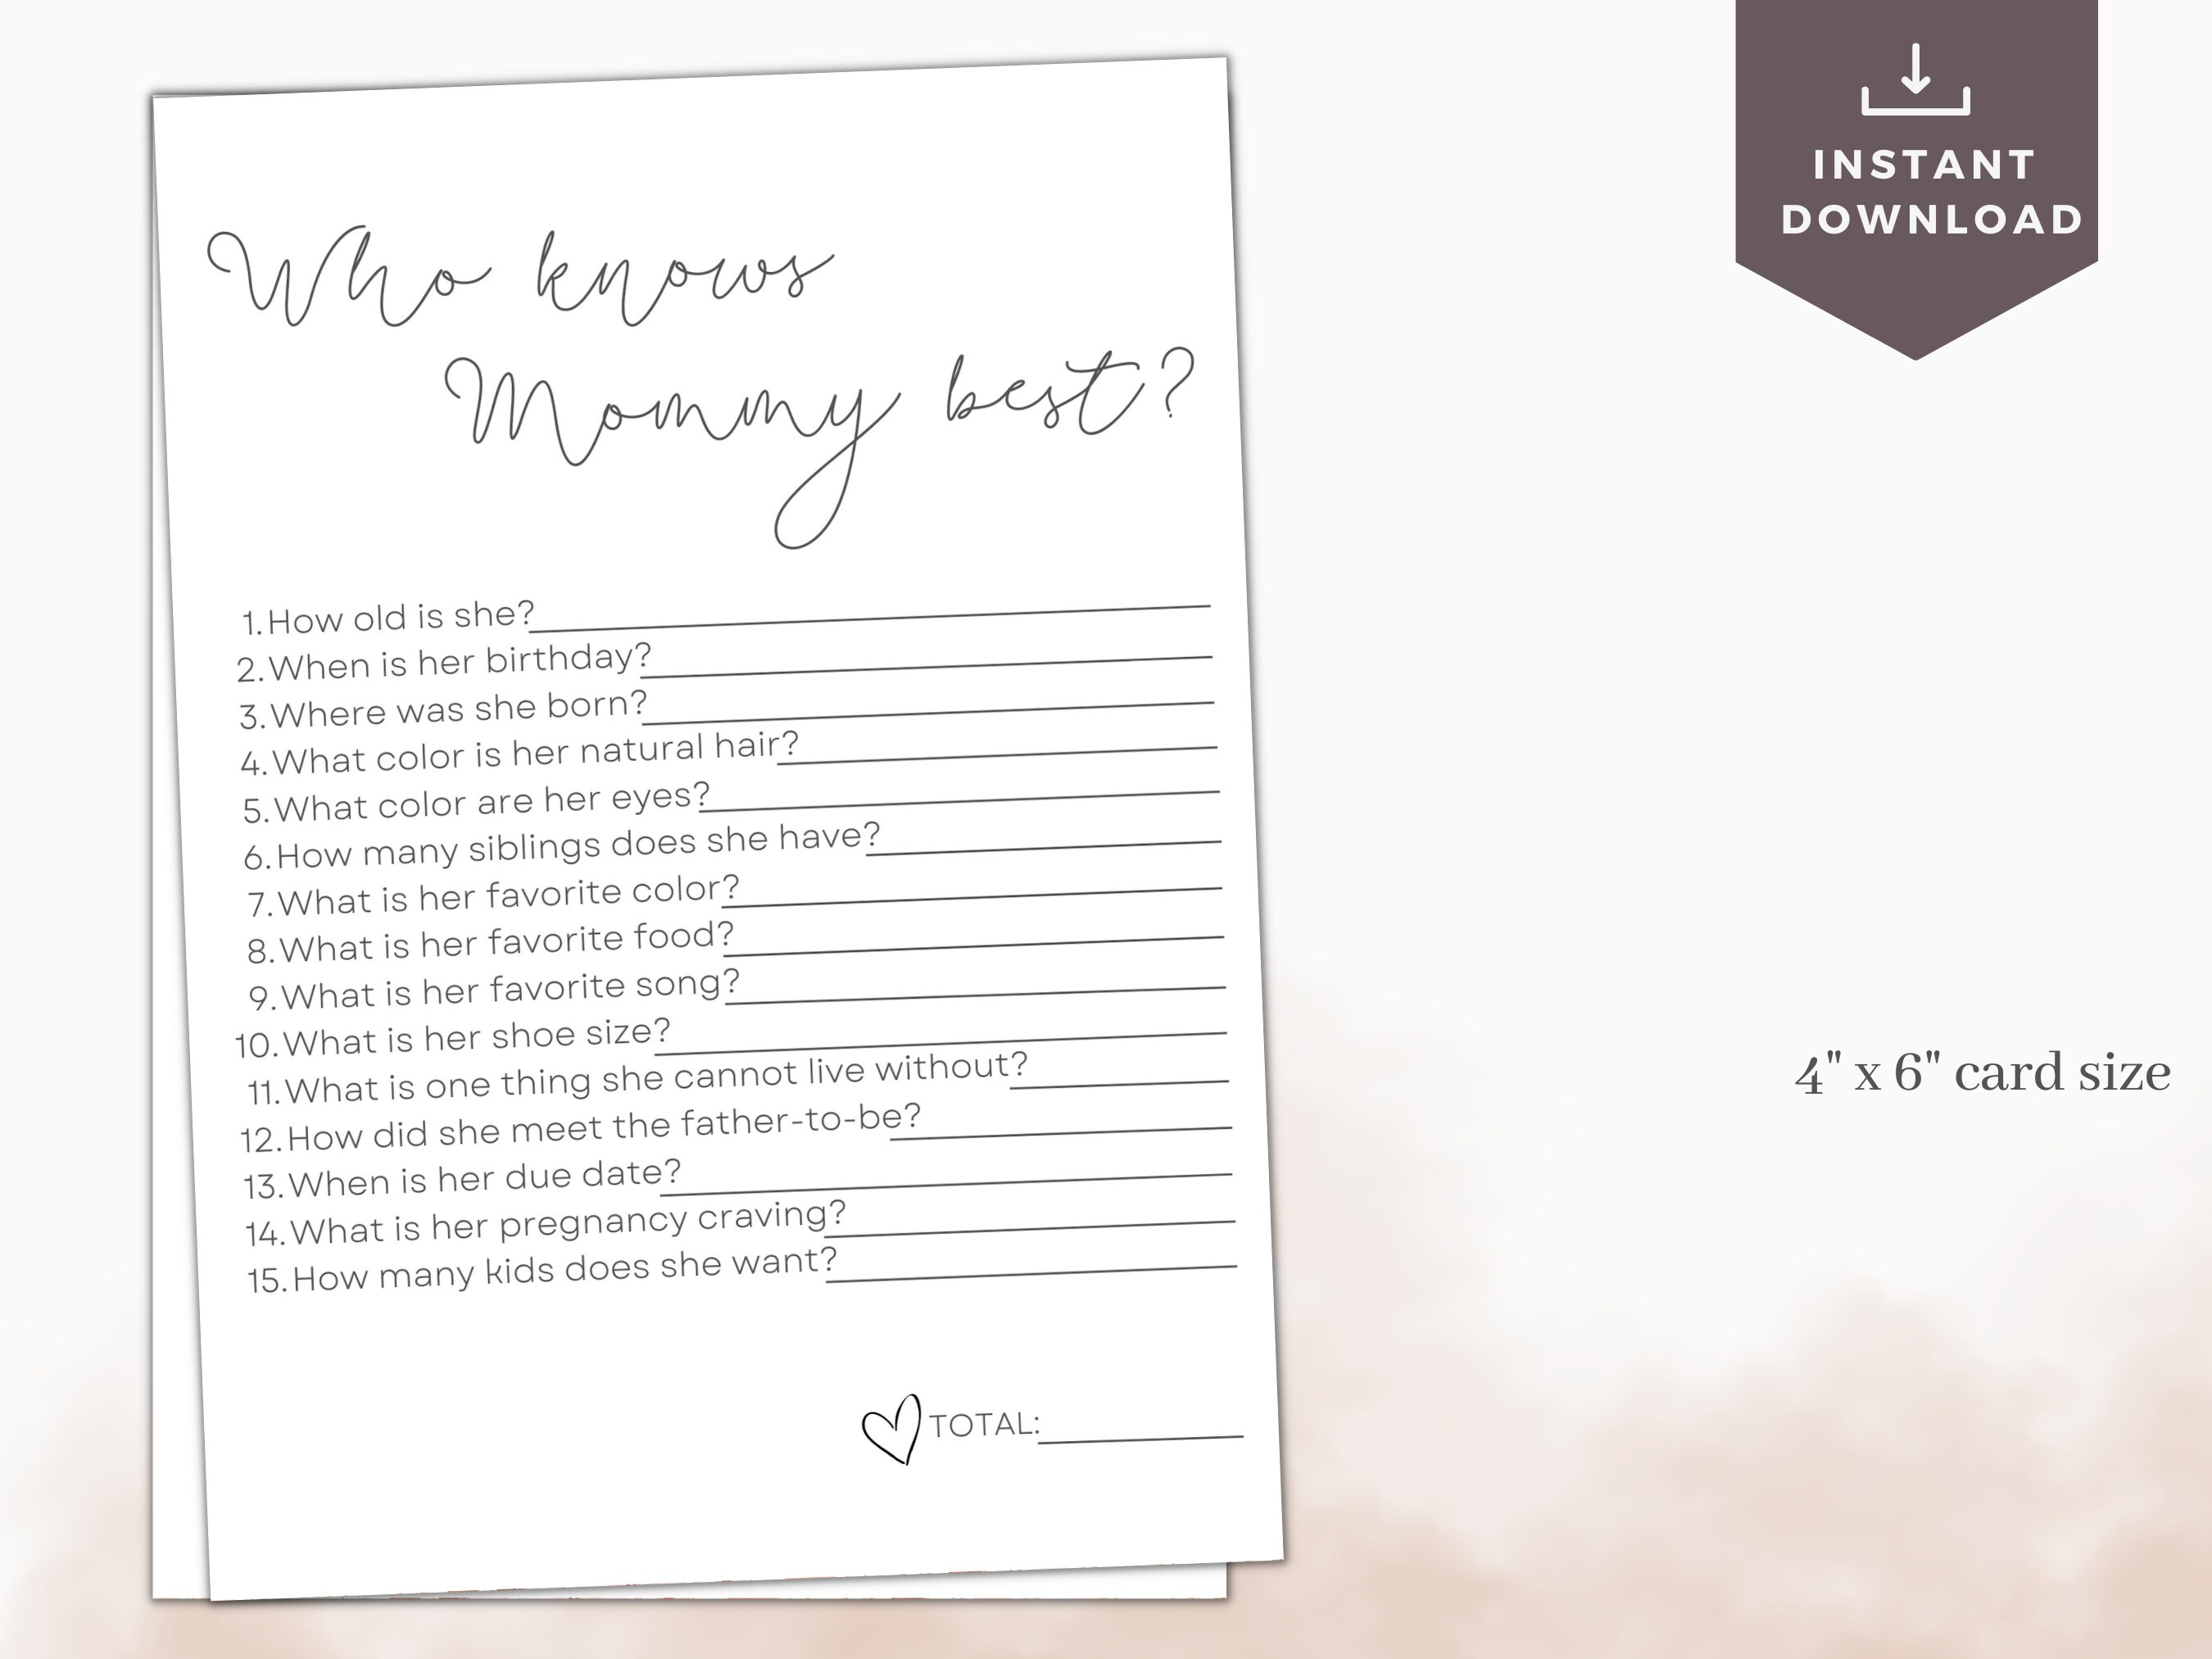 Who knows
Mommy best?
1. How old is she?
2. When is her birthday?
3. Where was she born?
4. What color is her natural hair?
5. What color are her eyes?
6. How many siblings does she have?
7. What is her favorite color?
8. What is her favorite food?
9. What is her favorite song?
10. What is her shoe size?
11. What is one thing she cannot live without?
12. How did she meet the father-to-be?
13. When is her due date?
14. What is her pregnancy craving?
15. How many kids does she want?
TOTAL:
INSTANT
DOWNLOAD
4" x 6" card size